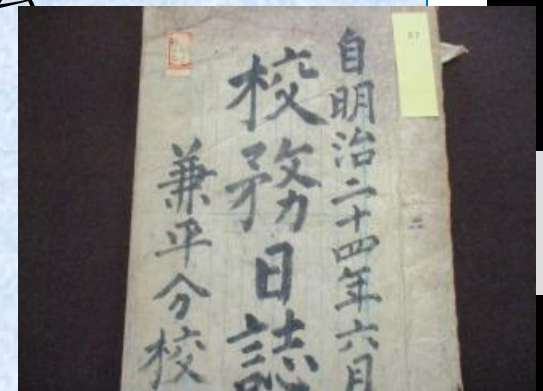 自明治二十四年六月
校務日誌
兼平分校
57